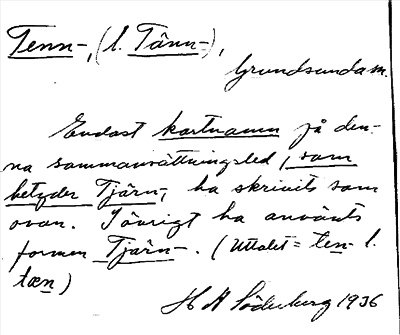 Tenn-, (l. Tänn-),
Grundsunda sn.
Endast kartnamn på den-
na sammansättningsled, som
betyder Tjärn-, ha skrivits som
ovan. I övrigt ha använts
formen Tjärn-. (Uttalet = ten- l.
tæn)
H A Söderberg 1936